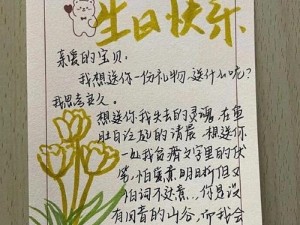 生日快乐
亲爱的宝贝:
我想送你一份礼物,送什么呢?
我思考良久。
想送你我失去的灵魂,在鱼
肚白泛起的清晨,想送你
一处我贫瘠文字里的伏
笔,怕寓意明目张但又
怕词不达意...你是没
有回音的山谷,而我会